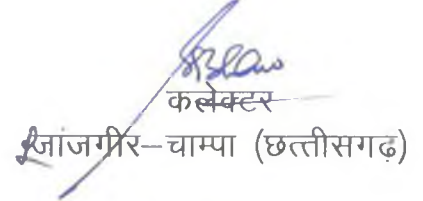 कलेक्टर
जांजगीर–चाम्पा (छत्तीसगढ़)